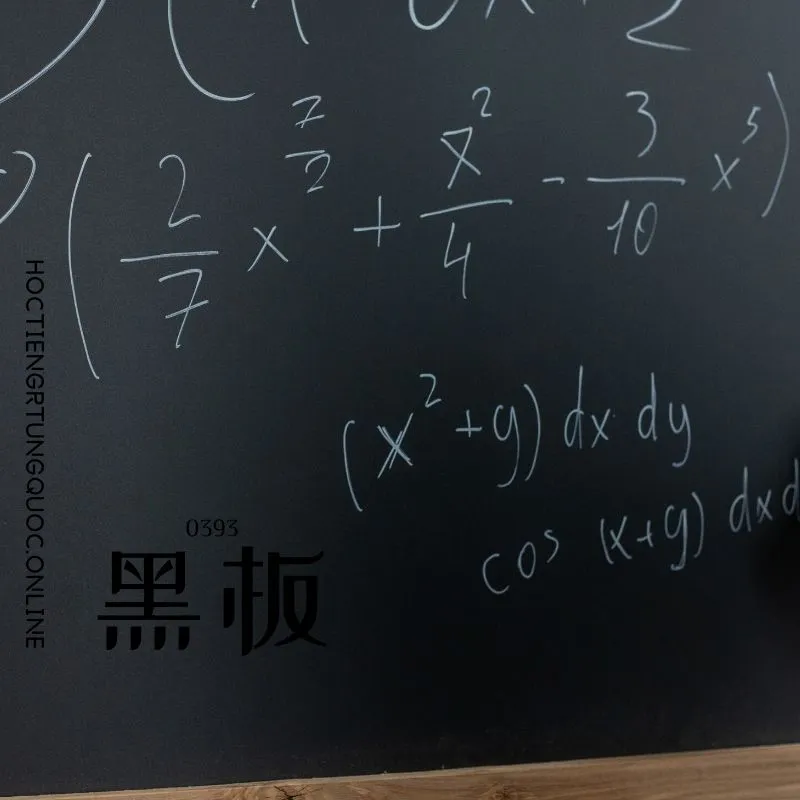 (2/7 x^(7/2) + x^2/4 - 3/10 x^5)
(x^2+y) dx dy
cos (x+y) dx
HOCTIENGRTUNGQUOC.ONLINE
0393
黑板